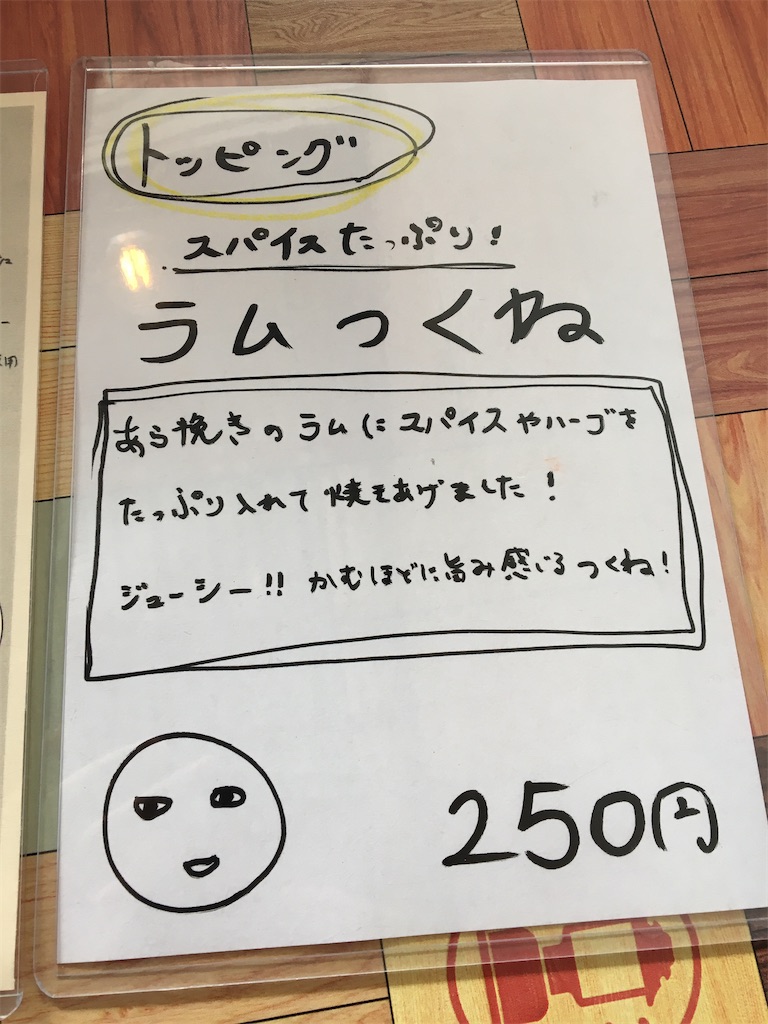 トッピング
スパイスたっぷり!
ラムつくね
あら挽きのラムにスパイスやハーブを
たっぷり入れて焼きあげました!
ジューシー!! かむほどに旨み感じるつくね!
250円